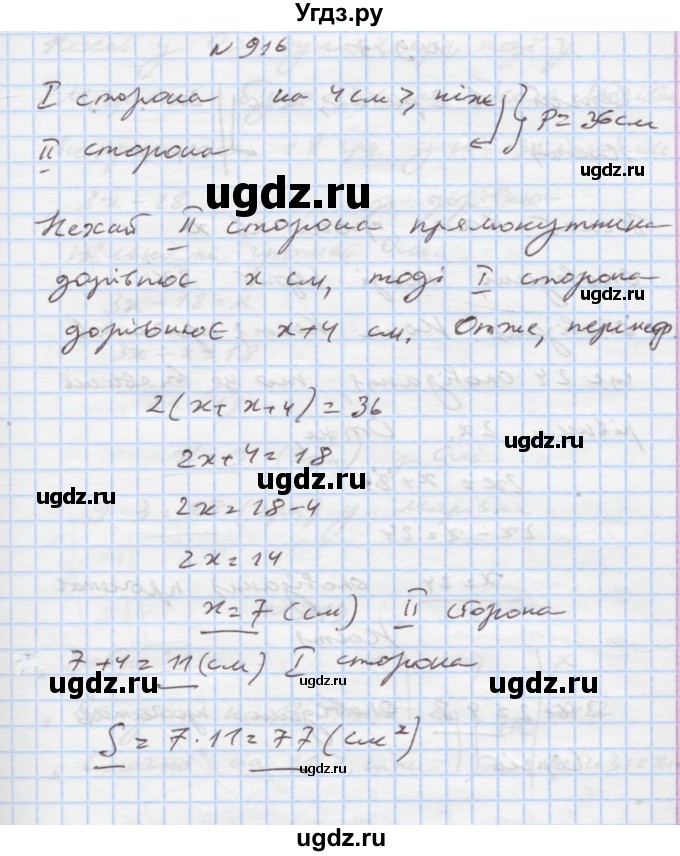 Угдз.ру
N 916
I сторона на 4 см >, ніж
II сторона
} P = 36 см
ugdz.ru
ugdz.ru
Нехай II сторона прямокутника
ugdz.ru
дорівнює x см, тоді I сторона
ugdz.ru
дорівнює x+4 см. Отже, периметр
2(x + x+4) = 36
2x+4 = 18
ugdz.ru
ugdz.ru
ugdz.ru
2x = 18-4
2x = 14
x = 7 (см) II сторона
ugdz.ru
7+4 = 11 (см) I сторона
ugdz.ru
ugdz.ru
S = 7·11 = 77 (см²)
ugdz.ru
ugdz.ru